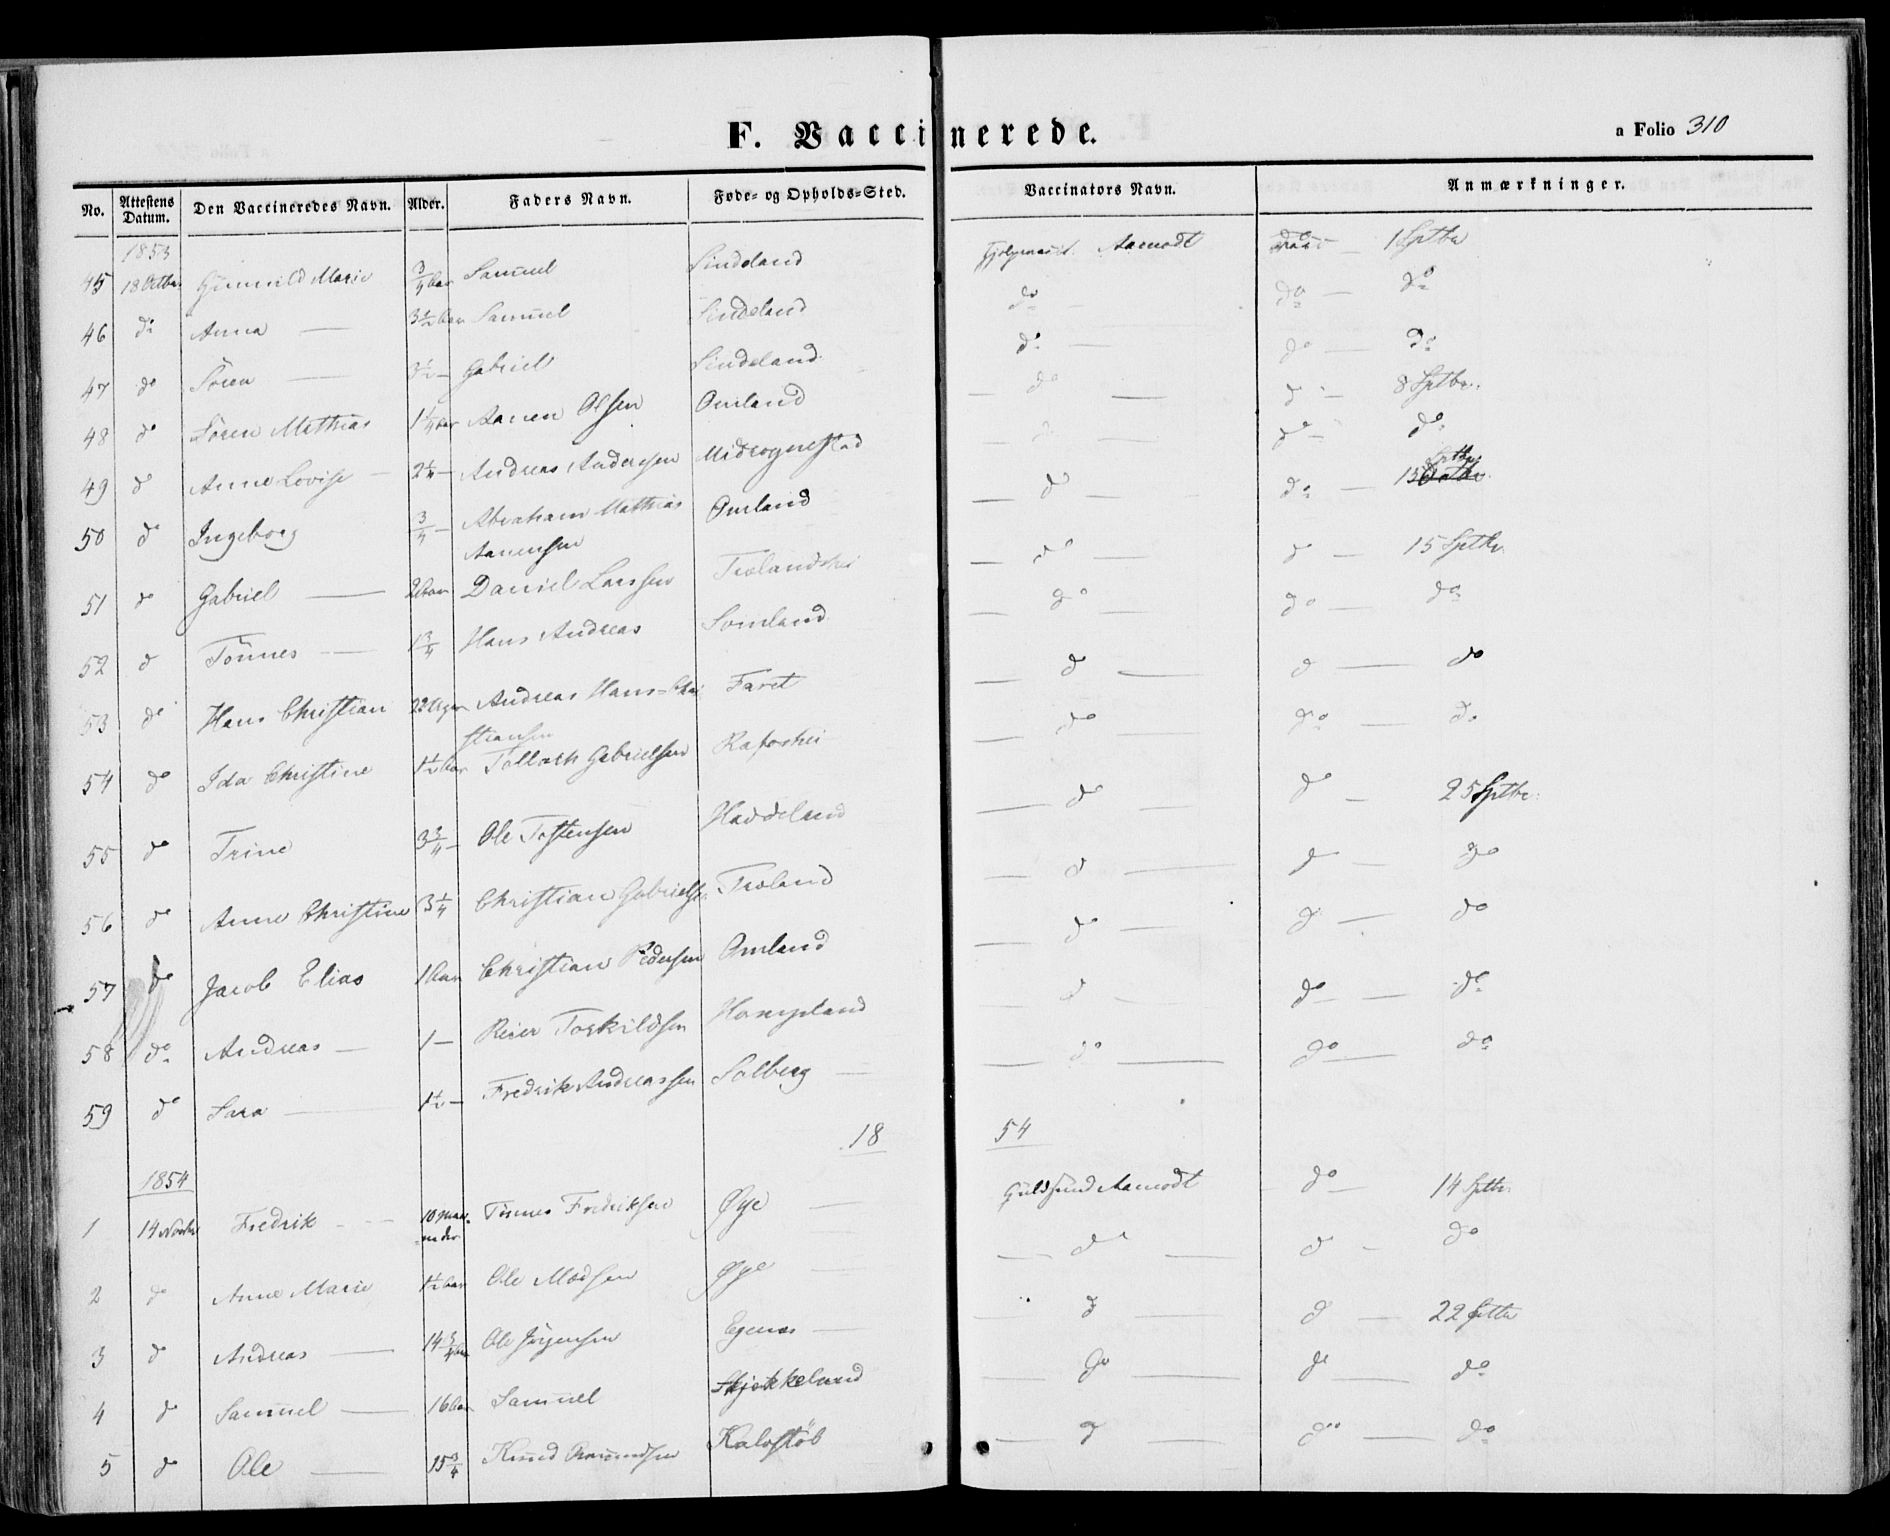 F. Vaccinerede.
a Folio 310
No. Attestens Datum. Den Vaccineredes Navn. Alder. Faders Navn. Føde- og Opholds-Sted. Vaccinators Navn. Anmærkninger.
1853
45 18 Octbr Gunnild Marie 3/4 Aar Samuel Sindeland Aamodt 1 Sptbr
46 do Anna — 3 1/2 Aar Samuel Sindeland do — do — do
47 do Søren — 3 1/2 — Gabriel Sindeland do — do — do
48 do Søren Mathias 1 1/4 Aar Aanen Olsen Omland — do — do — 8 Sptbr.
49 do Anne Lovise — 2 1/4 — Andreas Andersen Midrognestad — do — do — do
50 do Ingeborg 3/4 — Abraham Mathias Omland — do — do — 15 Sptbr.
Aanensen
51 do Gabriel — 2 Aar Daniel Larssen Trælandshei — do — do — 15 Sptbr.
52 do Tønnes — 1 3/4 Hans Andreas Somland — do — do — do
53 do Hans Christian 22 Uger Andreas Hans-Chri Faret — do — do — do
stiansen
54 do Ida Christine 1 1/2 Aar Tollach Gabrielsen — do — do — do
55 do Trine 3 3/4 — Ole Tostensen Haddeland — do — do — 25 Sptbr.
56 do Anne Christine 3 1/4 Christian Gabrielsen Træland — do — do — do
57 do Jacob Elias 1 Aar Christian Pedersen Omland — do — do — do
58 do Andreas — 1 — Reier Torkildsen Hompland — do — do — do
59 do Sara — 1 1/2 — Fredrik Andreassen Solberg — — do — do — do
18 54
1854
1 14 Novbr Fredrik — 10 Maa- Tønnes Fredriksen Øye — Guldsmed Aamodt do — 14 Sptbr
neder
2 do Anne Marie 1 1/2 Aar Ole Madsen Øye — — do — do — do
3 do Andreas — 14 3/4 Aar Ole Jørgensen Egenes — do — do — 22 Sptbr
4 do Samuel — 16 Aar Samuel Skjekkeland do — do — do
5 do Ole — 15 3/4 Knud Kaløstøb — do — do — do